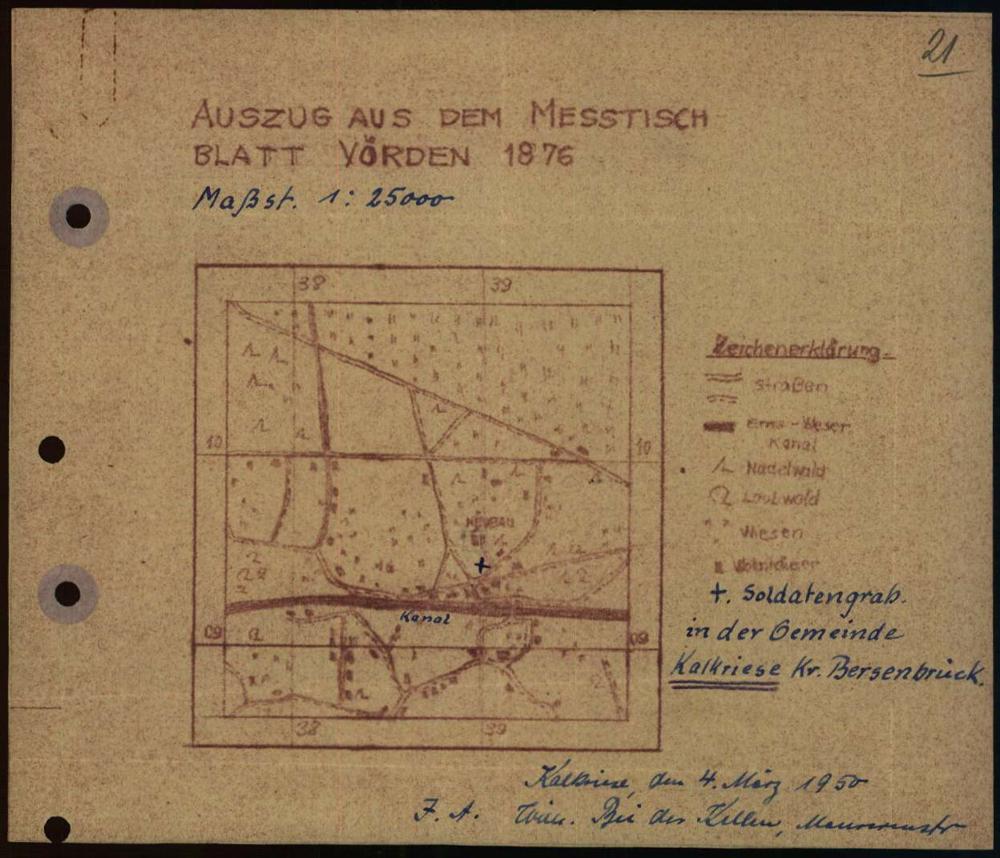 21
AUSZUG AUS DEM MESSTISCH
BLATT VÖRDEN 1876
Maßst. 1:25000
38 39
10 10
NEUBAU
Kanal
09 09
38 39
Zeichenerklärung
Straßen
Ems-Weser
Kanal
Nadelwald
Laubwald
Wiesen
Wohnhäuser
+. Soldatengrab.
in der Gemeinde
Kalkriese Kr. Bersenbrück.
Kalkriese, den 4. März 1950